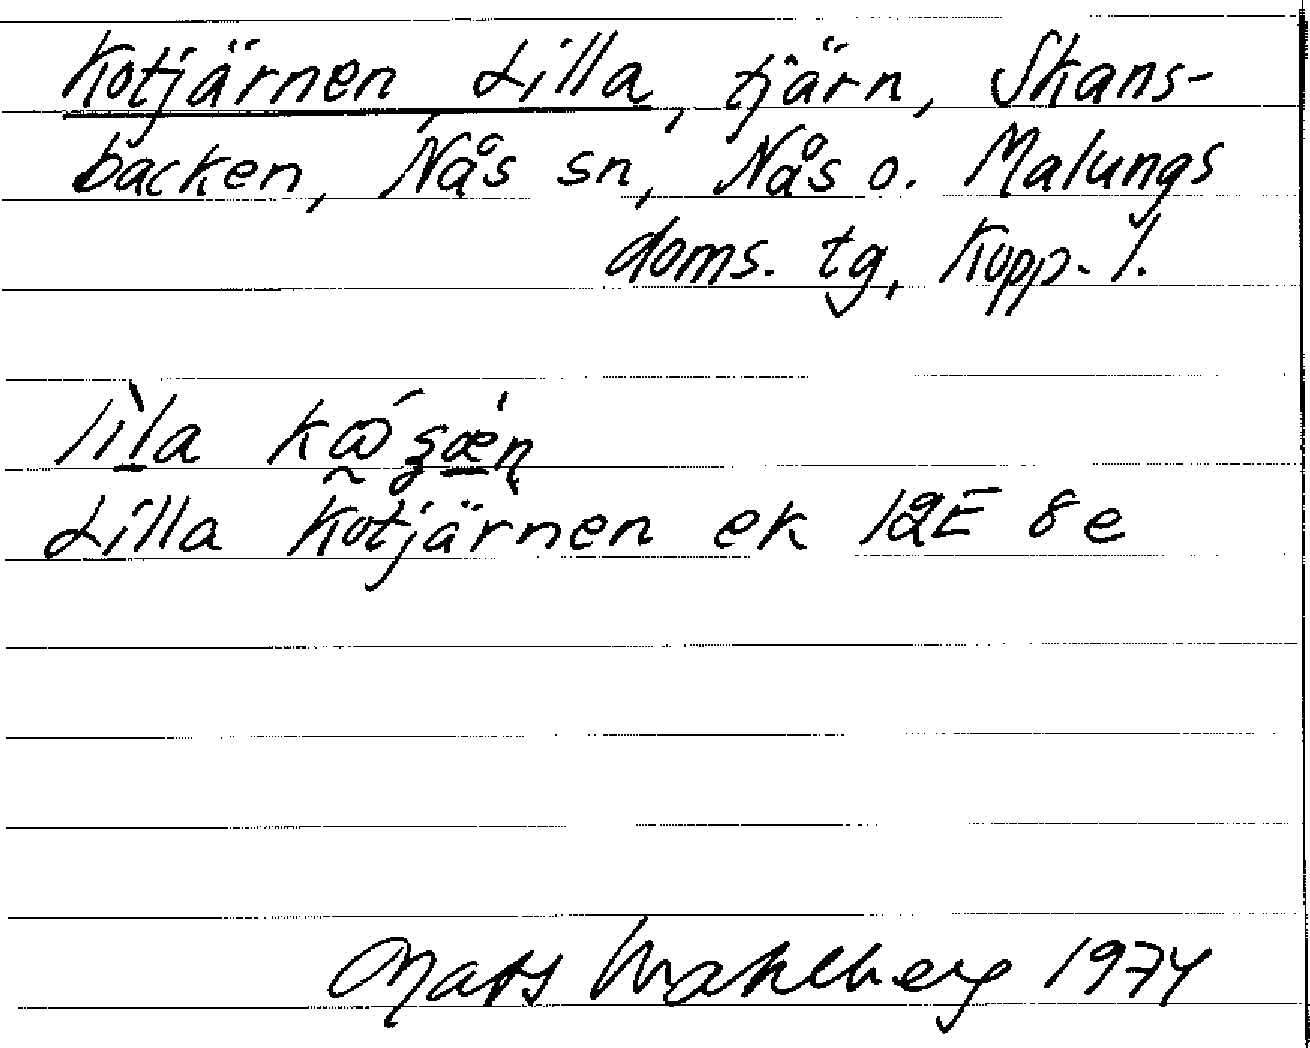 Kotjärnen Lilla, tjärn, Skans-
backen, Nås sn, Nås o. Malungs
doms. tg, Kopp. l.
Lilla Kotjärnen ek 12E 8e
Mats Wahlberg 1974